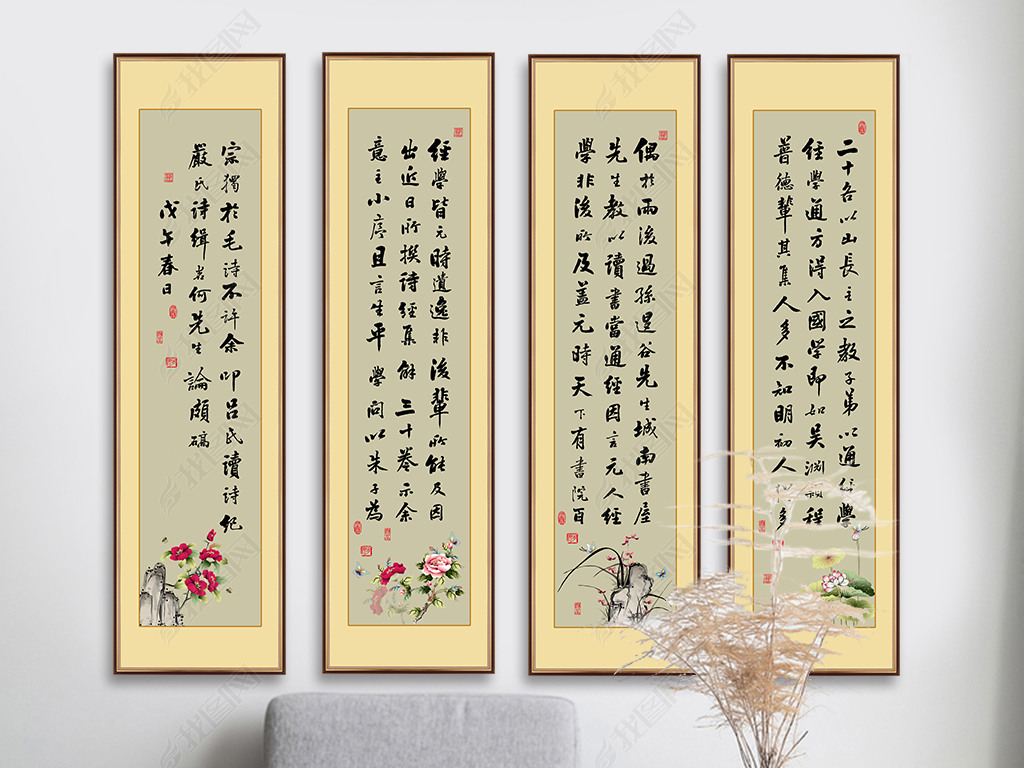 二十各以山長主之教子弟以通經學
經學通方得入國學即如吳淵穎程
普德輩其集人多不知明初人多
偶於雨後過孫退谷先生城南書屋
先生教以讀書當通經因言元人經
學非後所及蓋元時天下有書院百
經學皆元時遺逸非後輩所能及因
出近日所撰詩經集解三十卷示余
意主小序且言生平學問以朱子為
宗獨於毛詩不許余叩呂氏讀詩紀
嚴氏詩緝若何先生論頗礭
戊午春日